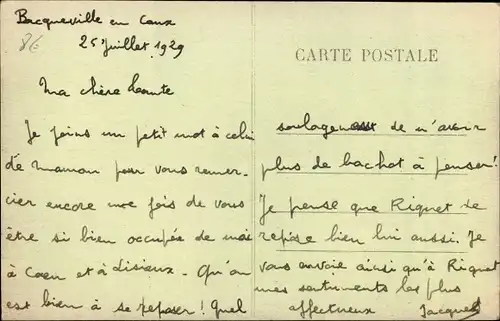 Bacqueville en Caux
25 Juillet 1929
CARTE POSTALE
Ma chère
Je joins un petit mot à celui
de maman pour vous remer-
cier encore une fois de vous
être si bien occupée de moi
à Caen et à Lisieux. Qu'on
est bien à se reposer! Quel
soulagement de n'avoir
plus de bachot à penser!
Je pense que Riquet se
repose bien lui aussi. Je
vous envoie ainsi qu'à Riquet
mes sentiments les plus
affectueux
Jacques